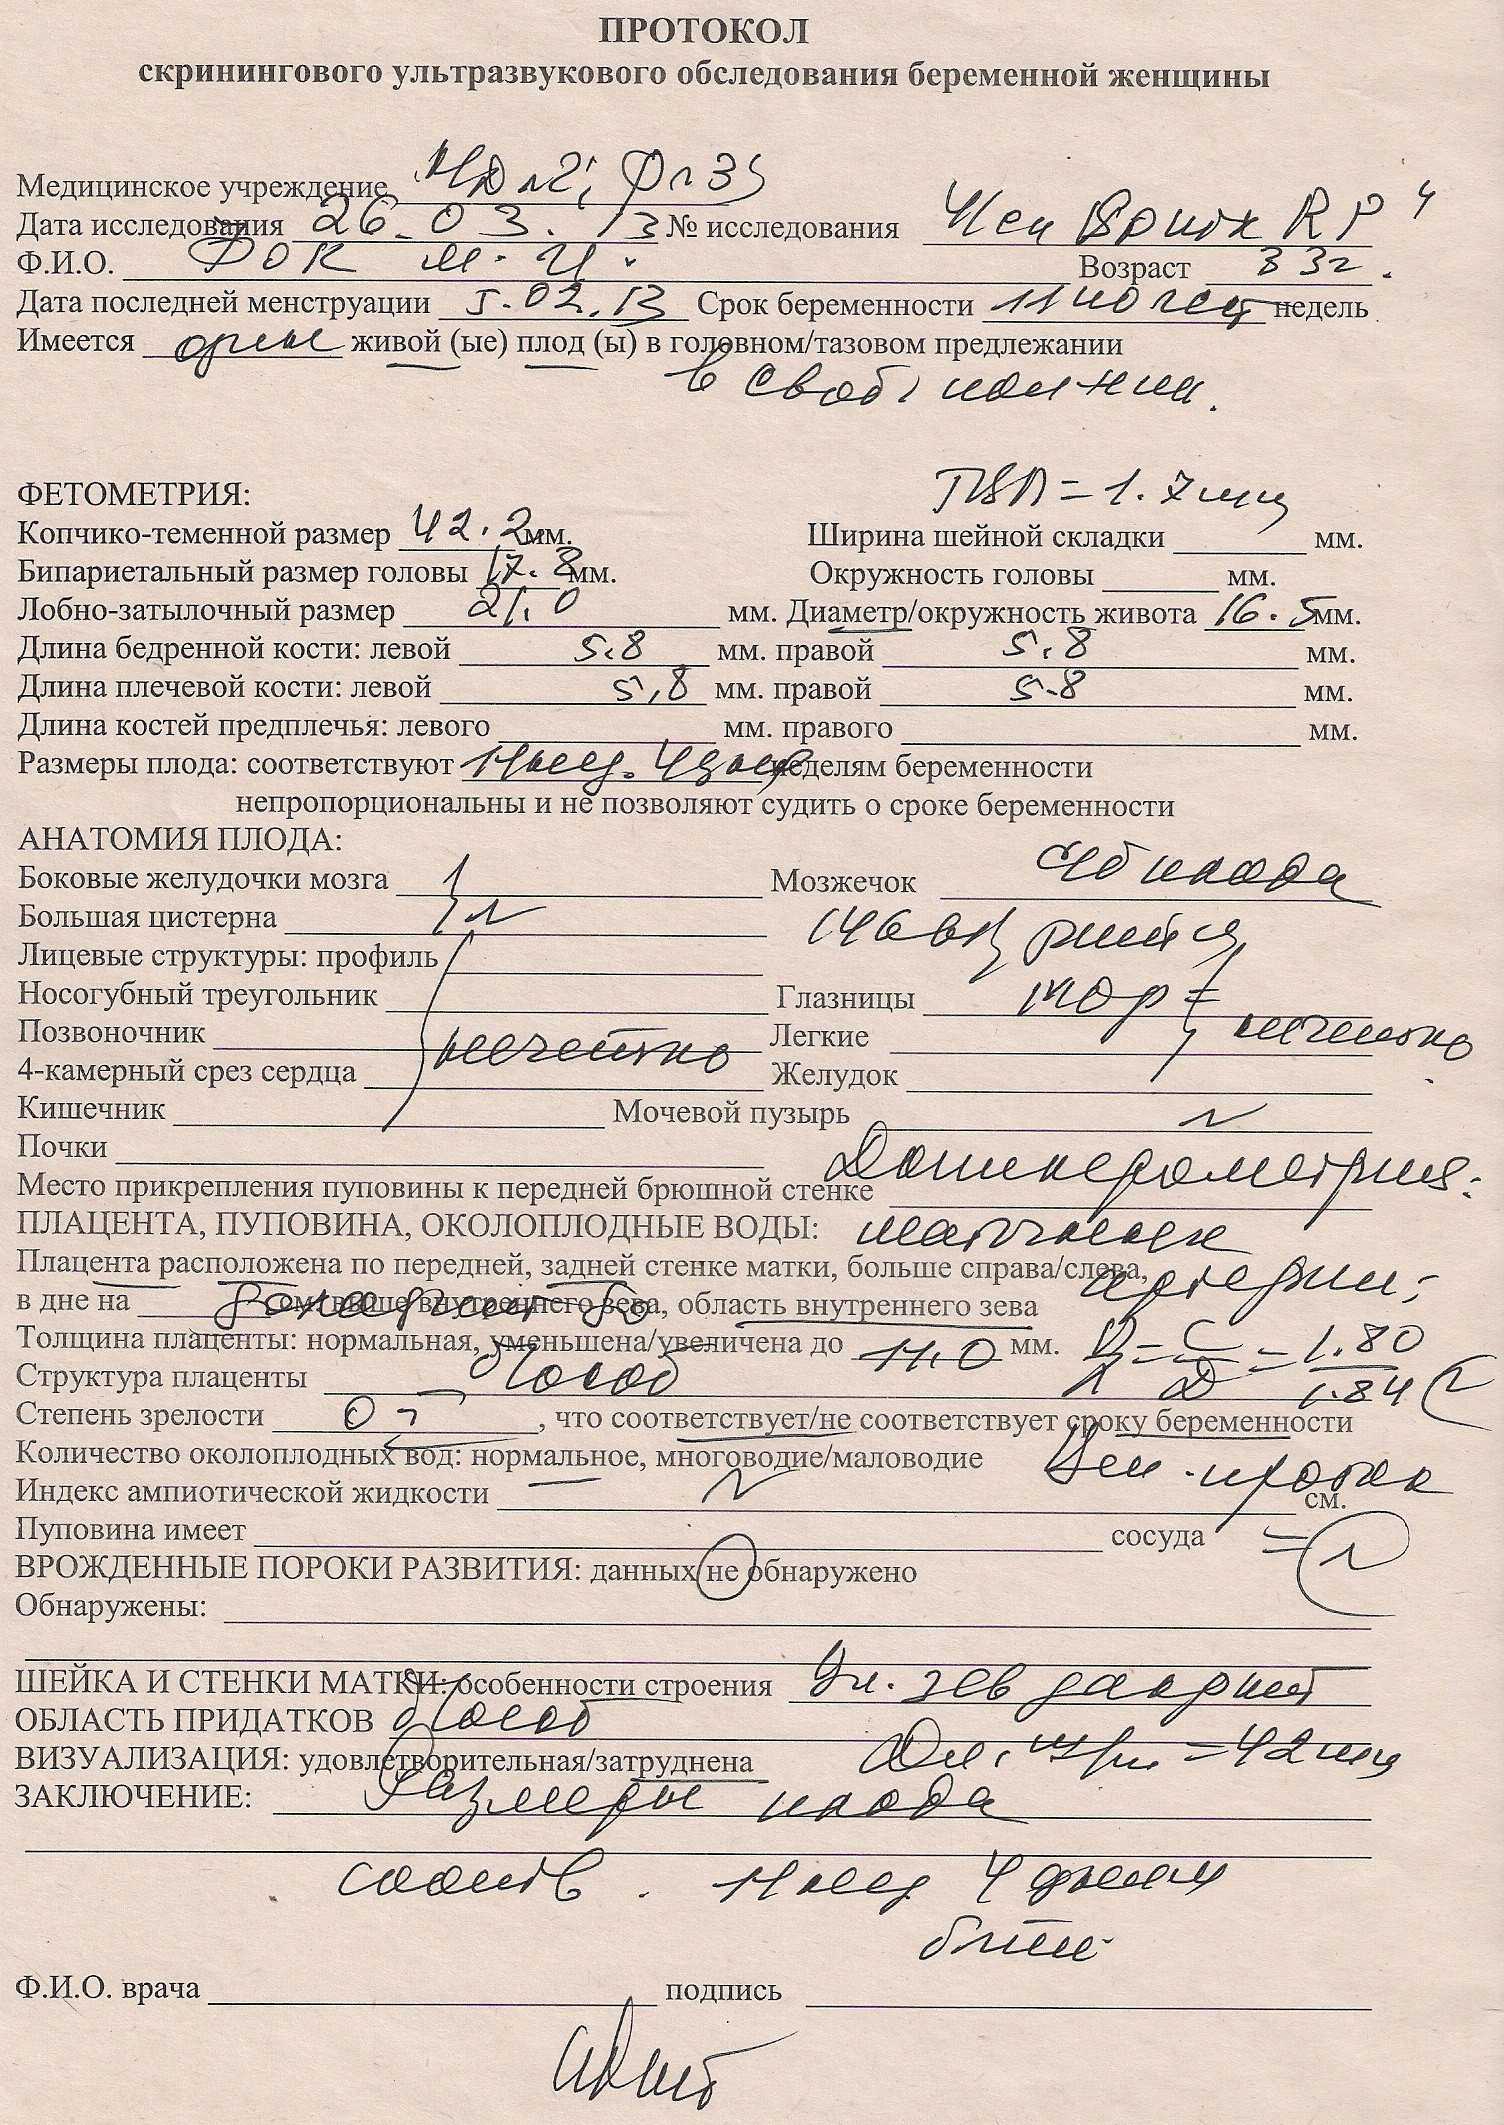 ПРОТОКОЛ
скринингового ультразвукового обследования беременной женщины
Медицинское учреждение
Дата исследования 26.03.13 № исследования
Ф.И.О. Фок М. И. Возраст 33г.
Дата последней менструации 5.02.13 Срок беременности 11 нед недель
Имеется один живой (ые) плод (ы) в головном/тазовом предлежании
в своб.
ФЕТОМЕТРИЯ: ТВП = 1.7мм
Копчико-теменной размер 42.2 мм. Ширина шейной складки мм.
Бипариетальный размер головы 17.8 мм. Окружность головы мм.
Лобно-затылочный размер 21.0 мм. Диаметр/окружность живота 16.5 мм.
Длина бедренной кости: левой 5.8 мм. правой 5.8 мм.
Длина плечевой кости: левой 5,8 мм. правой 5.8 мм.
Длина костей предплечья: левого мм. правого мм.
Размеры плода: соответствуют 11 нед. 4 дня неделям беременности
непропорциональны и не позволяют судить о сроке беременности
АНАТОМИЯ ПЛОДА: с/б плода
Боковые желудочки мозга Мозжечок
Большая цистерна N 146 ритм
Лицевые структуры: профиль
Носогубный треугольник Глазницы
Позвоночник нечетко Легкие нечетко
4-камерный срез сердца Желудок
Кишечник Мочевой пузырь N
Почки Допплерометрия:
Место прикрепления пуповины к передней брюшной стенке
ПЛАЦЕНТА, ПУПОВИНА, ОКОЛОПЛОДНЫЕ ВОДЫ: маточные
Плацента расположена по передней, задней стенке матки, больше справа/слева, артерии:
в дне на см. выше внутреннего зева, область внутреннего зева
Толщина плаценты: нормальная, уменьшена/увеличена до 11,0 мм. 1.80
Структура плаценты б/особ 1.84 N
Степень зрелости 0 , что соответствует/не соответствует сроку беременности
Количество околоплодных вод: нормальное, многоводие/маловодие
Индекс ампиотической жидкости N см.
Пуповина имеет сосуда = N
ВРОЖДЕННЫЕ ПОРОКИ РАЗВИТИЯ: данных не обнаружено
Обнаружены:
ШЕЙКА И СТЕНКИ МАТКИ: особенности строения Вн. зев закрыт
ОБЛАСТЬ ПРИДАТКОВ б/особ
ВИЗУАЛИЗАЦИЯ: удовлетворительная/затруднена Дл. = 42мм
ЗАКЛЮЧЕНИЕ: Размеры плода
соотв. 11 нед 4 дням
бер.
Ф.И.О. врача подпись